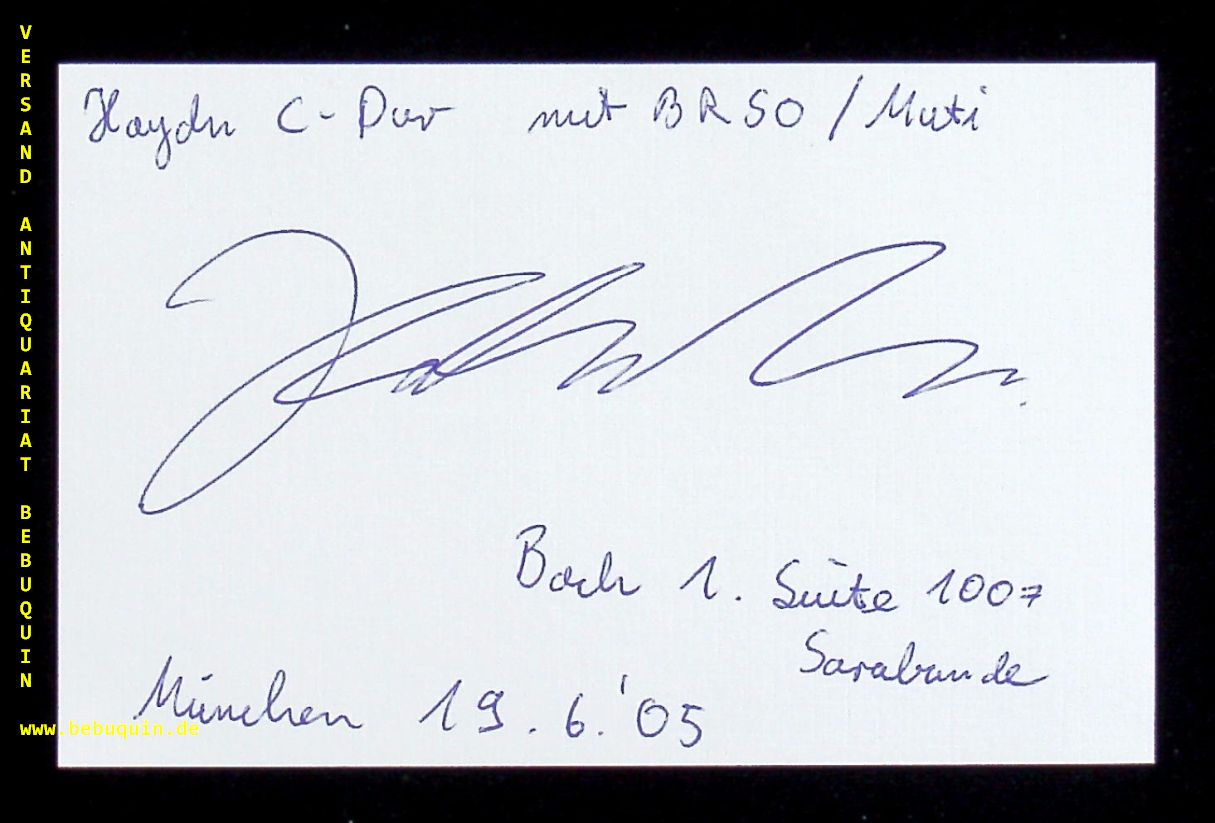 VERSAND ANTIQUARIAT BEBUQUIN
Haydn C-Dur mit BRSO / Muti
Bach 1. Suite 1007
Sarabande
München 19.6.'05
www.bebuquin.de